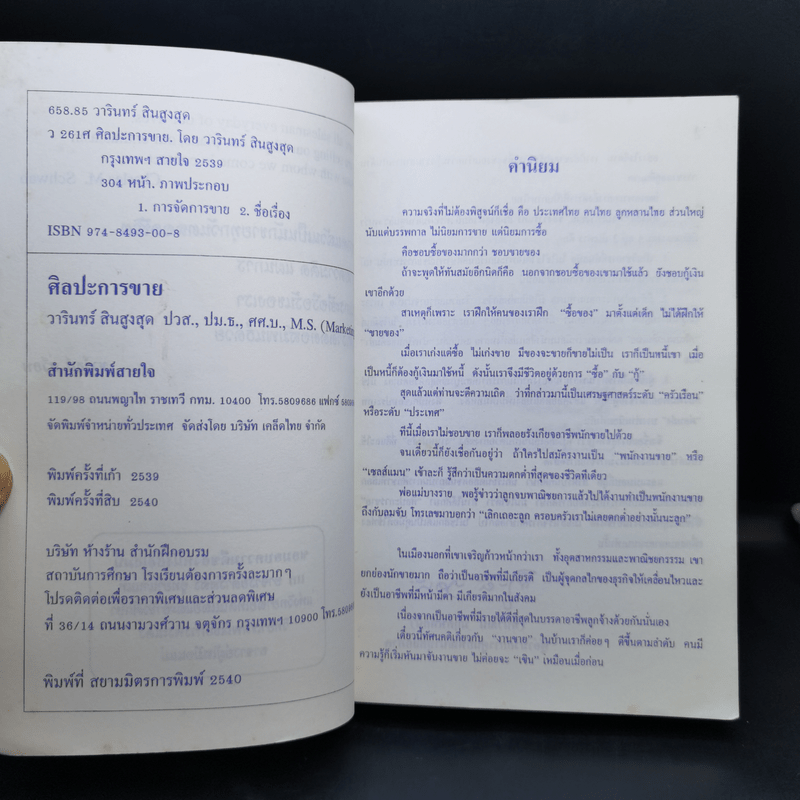 658.85 วารินทร์ สินสูงสุด
ว 261ศ ศิลปะการขาย. โดย วารินทร์ สินสูงสุด
กรุงเทพฯ สายใจ 2539
304 หน้า. ภาพประกอบ
1. การจัดการขาย 2. ชื่อเรื่อง
ISBN 974-8493-00-8
ศิลปะการขาย
วารินทร์ สินสูงสุด ปวส., ปม.ธ., ศศ.บ., M.S.
สำนักพิมพ์สายใจ
119/98 ถนนพญาไท ราชเทวี กทม. 10400 โทร.5809686 แฟกซ์
จัดพิมพ์จำหน่ายทั่วประเทศ จัดส่งโดย บริษัท เคล็ดไทย จำกัด
พิมพ์ครั้งที่เก้า 2539
พิมพ์ครั้งที่สิบ 2540
บริษัท ห้างร้าน สำนักฝึกอบรม
สถาบันการศึกษา โรงเรียนต้องการครั้งละมากๆ
โปรดติดต่อเพื่อราคาพิเศษและส่วนลดพิเศษ
ที่ 36/14 ถนนงามวงศ์วาน จตุจักร กรุงเทพฯ 10900
พิมพ์ที่ สยามมิตรการพิมพ์ 2540
คำนิยม
ความจริงที่ไม่ต้องพิสูจน์ก็เชื่อ คือ ประเทศไทย คนไทย ลูกหลานไทย ส่วนใหญ่
นับแต่บรรพกาล ไม่นิยมการขาย แต่นิยมการซื้อ
คือชอบซื้อของมากกว่า ชอบขายของ
ถ้าจะพูดให้ทันสมัยอีกนิดก็คือ นอกจากชอบซื้อของเขามาใช้แล้ว ยังชอบกู้เงิน
เขาอีกด้วย
สาเหตุก็เพราะ เราฝึกให้คนของเราฝึก “ซื้อของ” มาตั้งแต่เด็ก ไม่ได้ฝึกให้
“ขายของ”
เมื่อเราเก่งแต่ซื้อ ไม่เก่งขาย มีของจะขายก็ขายไม่เป็น เราก็เป็นหนี้เขา เมื่อ
เป็นหนี้ก็ต้องกู้เงินมาใช้หนี้ ดังนั้นเราจึงมีชีวิตอยู่ด้วยการ “ซื้อ” กับ “กู้”
สุดแล้วแต่ท่านจะตีความเถิด ว่าที่กล่าวมานี้เป็นเศรษฐศาสตร์ระดับ “ครัวเรือน”
หรือระดับ “ประเทศ”
ทีนี้เมื่อเราไม่ชอบขาย เราก็พลอยรังเกียจอาชีพนักขายไปด้วย
จนเดี๋ยวนี้ก็ยังเชื่อกันอยู่ว่า ถ้าใครไปสมัครงานเป็น “พนักงานขาย” หรือ
“เซลส์แมน” เข้าละก็ รู้สึกว่าเป็นความตกต่ำที่สุดของชีวิตทีเดียว
พ่อแม่บางราย พอรู้ข่าวว่าลูกจบพาณิชยการแล้วไปได้งานทำเป็นพนักงานขาย
ถึงกับลมจับ โทรเลขมาบอกว่า “เลิกเถอะลูก ครอบครัวเราไม่เคยตกต่ำอย่างนั้นนะลูก”
ในเมืองนอกที่เขาเจริญก้าวหน้ากว่าเรา ทั้งอุตสาหกรรมและพาณิชยกรรม เขา
ยกย่องนักขายมาก ถือว่าเป็นอาชีพที่มีเกียรติ เป็นผู้จุดกลไกของธุรกิจให้เคลื่อนไหวและ
ยังเป็นอาชีพที่มีหน้ามีตา มีเกียรติมากในสังคม
เนื่องจากเป็นอาชีพที่มีรายได้ดีที่สุดในบรรดาอาชีพลูกจ้างด้วยกันนั่นเอง
เดี๋ยวนี้ทัศนคติเกี่ยวกับ “งานขาย” ในบ้านเราก็ค่อยๆ ดีขึ้นตามลำดับ คนมี
ความรู้ก็เริ่มหันมาจับงานขาย ไม่ค่อยจะ “เขิน” เหมือนเมื่อก่อน